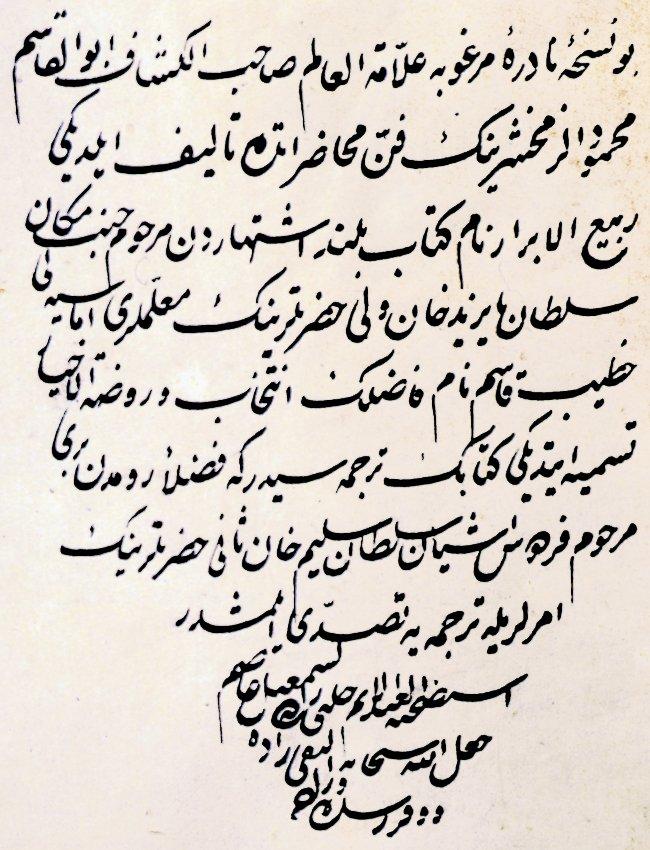 بو نسخهٔ نادرهٔ مرغوبه علاّمة العالم صاحب الكشاف ابو القاسم
محمود الزمخشرينك فنّ محاضراتده تأليف ايلديكى
ربيع الابرار نام كتاب بلند اشتهاردن مرحوم جنت مكان
سلطان بايزيد خان ولى حضرتلرينك معلّملرى اماسيه لى
خطيب قاسم نام فاضلك انتخاب و روضة الاخيار
تسميه ايتديكى كتابك ترجمه سيدركه فضلاء رومدن برى
مرحوم فردوس آشيان سلطان سليم خان ثانى حضرتلرينك
امرلريله ترجمه يه تصدّى ايلمشدر
جعل الله سبحانه التقى زاده